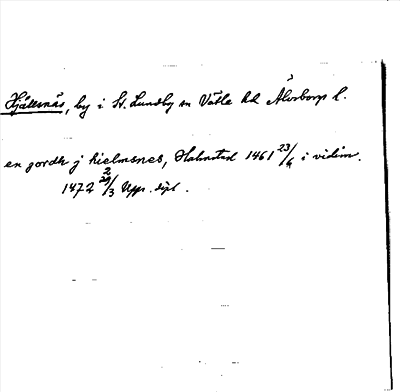 Hjällsnäs, by i St. Lundby sn Vätle hd Älvsborgs l.
en gordh j hielmsnes, Halmstad 1461 23/6 i vidim.
1472 29/3 Upps. dipl.